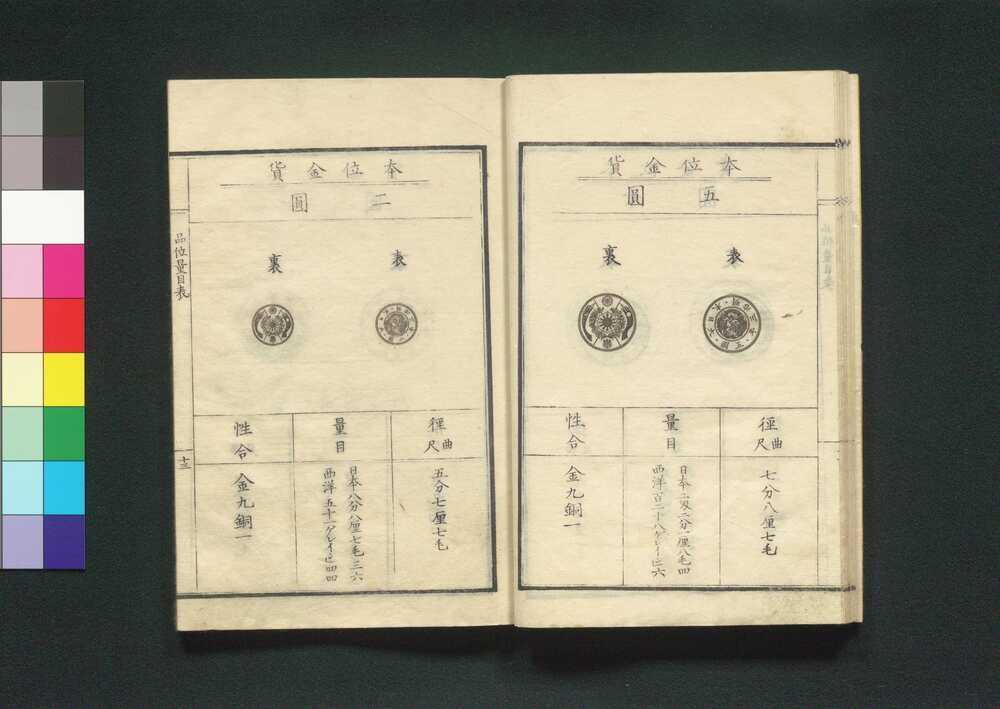 本位金貨
五圓
表
裏
徑曲尺
七分八厘七毛
量目
日本二匁二分一厘八毛四
西洋百二十八グレイン六
性合
金九銅一
本位金貨
二圓
表
裏
徑曲尺
五分七厘七毛
量目
日本八分八厘七毛三六
西洋五十一グレイン四四
性合
金九銅一
品位量目表
十三